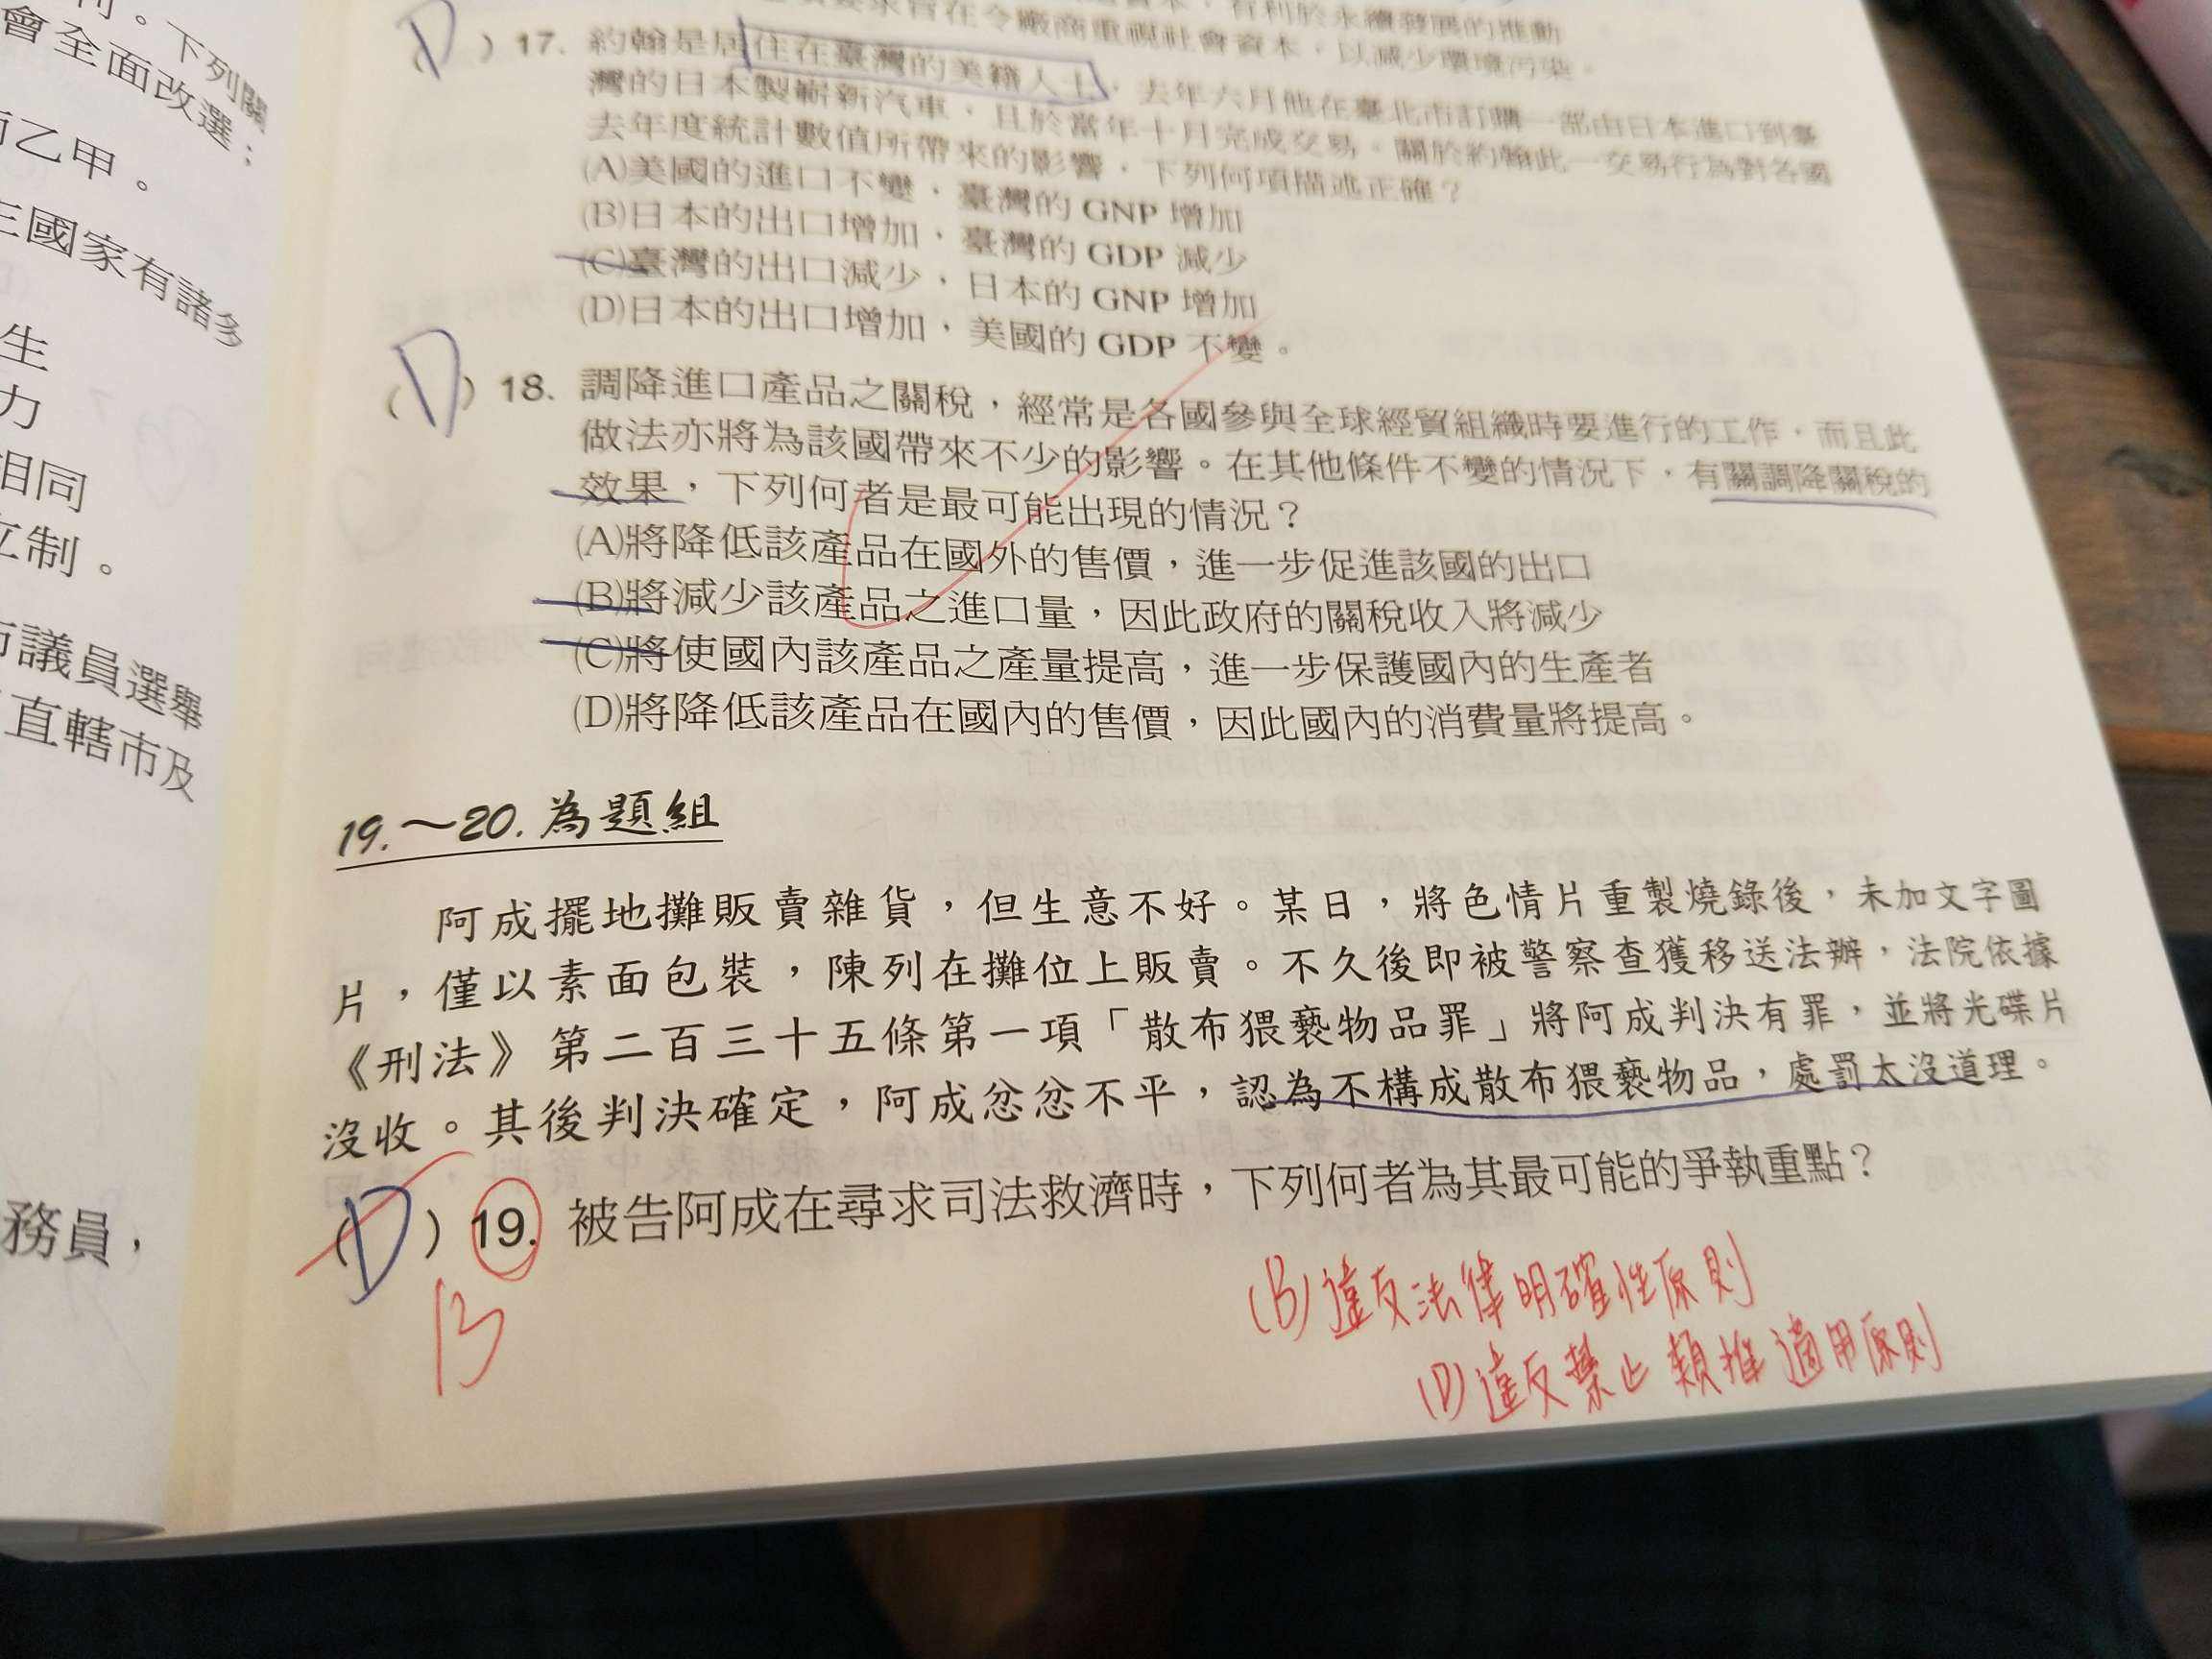 會全面改選；
。下列關
而乙甲。
三國家有諸多
生
力
相同
立制。
市議員選舉
直轄市及
務員，
有利於永續發展的推動
要求旨在令廠商重視社會資本，以減少環境污染。
(D) 17. 約翰是居住在臺灣的美籍人士，去年六月他在臺北市訂購一部由日本進口到臺
灣的日本製嶄新汽車，且於當年十月完成交易。關於約翰此一交易行為對各國
去年度統計數值所帶來的影響，下列何項描述正確？
(A)美國的進口不變，臺灣的 GNP 增加
(B)日本的出口增加，臺灣的 GDP 減少
(C)臺灣的出口減少，日本的 GNP 增加
(D)日本的出口增加，美國的 GDP 不變。
(D) 18. 調降進口產品之關稅，經常是各國參與全球經貿組織時要進行的工作，而且此
做法亦將為該國帶來不少的影響。在其他條件不變的情況下，有關調降關稅的
效果，下列何者是最可能出現的情況？
(A)將降低該產品在國外的售價，進一步促進該國的出口
(B)將減少該產品之進口量，因此政府的關稅收入將減少
(C)將使國內該產品之產量提高，進一步保護國內的生產者
(D)將降低該產品在國內的售價，因此國內的消費量將提高。
19.～20.為題組
阿成擺地攤販賣雜貨，但生意不好。某日，將色情片重製燒錄後，未加文字圖
片，僅以素面包裝，陳列在攤位上販賣。不久後即被警察查獲移送法辦，法院依據
《刑法》第二百三十五條第一項「散布猥褻物品罪」將阿成判決有罪，並將光碟片
沒收。其後判決確定，阿成忿忿不平，認為不構成散布猥褻物品，處罰太沒道理。
(D) 19. 被告阿成在尋求司法救濟時，下列何者為其最可能的爭執重點？
B
(B)違反法律明確性原則
(D)違反禁止類推適用原則